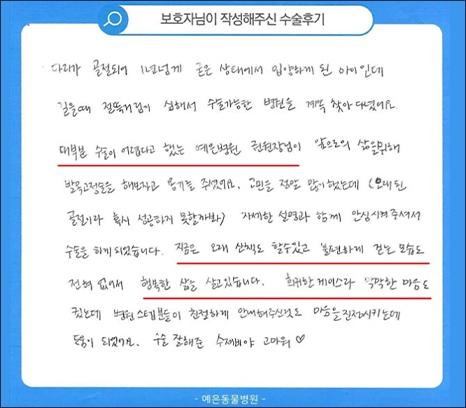 보호자님이 작성해주신 수술후기
다리가 골절되어 1년넘게 굳은 상태에서 입양하게 된 아이인데
걸을때 절뚝거림이 심해서 수술가능한 병원을 계속 찾아다녔어요.
대부분 수술이 어렵다고 했는데 예은병원 권원장님이 앞으로의 삶을위해
발목고정술을 해보자고 용기를 주셨어요. 고민을 정말 많이했는데 (오래된
골절이라 혹시 성공하지 못할까봐) 자세한 설명과 함께 안심시켜주셔서
수술을 하게 되었습니다. 지금은 오래 산책도 할수있고 불편하게 걷는 모습도
전혀 없어서 행복한 삶을 살고있습니다. 희귀한 케이스라 막막한 마음도
컸는데 병원 스텝분들이 친절하게 안내해주신것도 마음을 진정시키는데
도움이 되었어요. 수술 잘해준 수제비야 고마워♡
- 예은동물병원 -